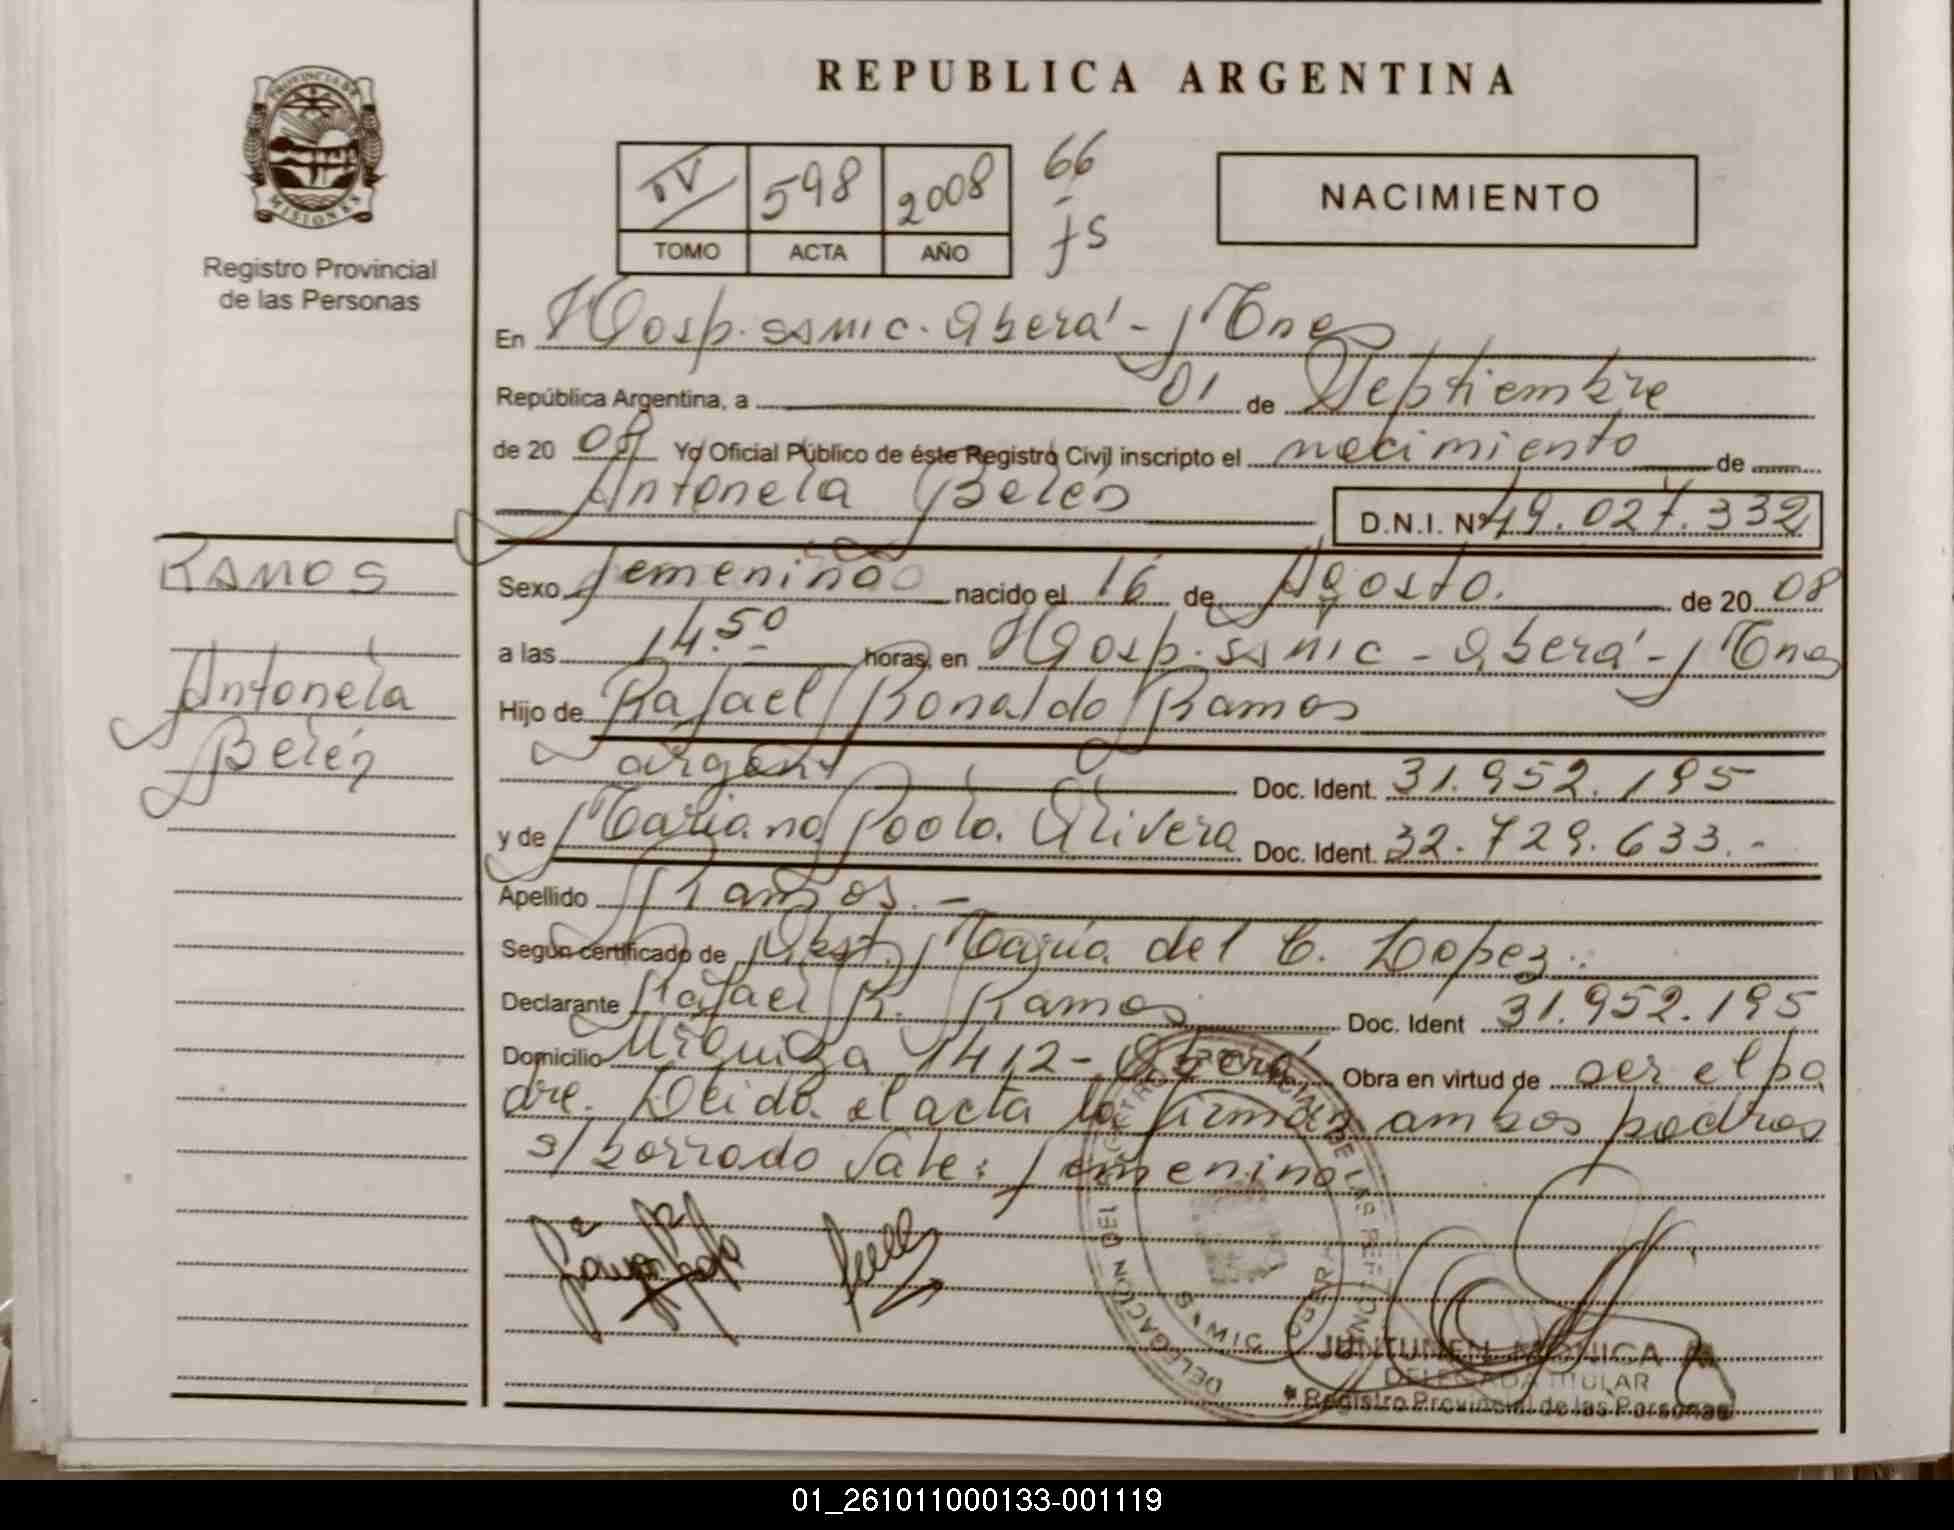 REPUBLICA ARGENTINA
PROVINCIA DE
MISIONES
Registro Provincial
de las Personas
IV 598 2008 66
TOMO ACTA AÑO fs
NACIMIENTO
En Hosp. samic. Oberá - Mnes
República Argentina, a 01 de Septiembre
de 20 08 Yo Oficial Público de éste Registro Civil inscripto el nacimiento de
Antonela Belén D.N.I. Nº 49.027.332
RAMOS
Antonela
Belén
Sexo femenino nacido el 16 de Agosto. de 20 08
a las 14.50 horas, en Hosp. samic - Oberá - Mnes
Hijo de Rafael Ronaldo Ramos
argent Doc. Ident. 31.952.195
y de Mariana Paola Olivera Doc. Ident. 32.729.633.-
Apellido Ramos.-
Según certificado de Obst. María del C. Lopez.
Declarante Rafael R. Ramos Doc. Ident 31.952.195
Domicilio 1412 - Oberá Obra en virtud de ser el pa
dre. Leida el acta la firman ambos padres
s/borrado vale: femenino
DELEGACION DEL REGISTRO PROVINCIAL DE LAS PERSONAS
JUNTUNEN MONICA
DELEGADA TITULAR
Registro Provincial de las Personas
01_261011000133-001119